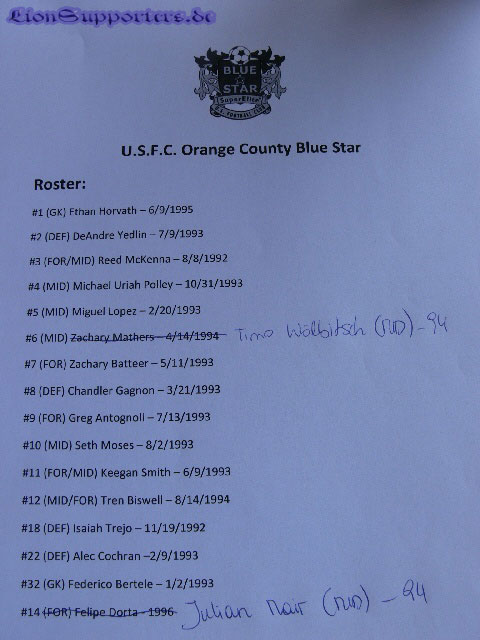 LionSupporters.de
BLUE
STAR
SuperElite
O.C. FOOTBALL CLUB
U.S.F.C. Orange County Blue Star
Roster:
#1 (GK) Ethan Horvath – 6/9/1995
#2 (DEF) DeAndre Yedlin – 7/9/1993
#3 (FOR/MID) Reed McKenna – 8/8/1992
#4 (MID) Michael Uriah Polley – 10/31/1993
#5 (MID) Miguel Lopez – 2/20/1993
#6 (MID) Zachary Mathers – 4/14/1994 Timo Wölbitsch (MID) - 94
#7 (FOR) Zachary Batteer – 5/11/1993
#8 (DEF) Chandler Gagnon – 3/21/1993
#9 (FOR) Greg Antognoli – 7/13/1993
#10 (MID) Seth Moses – 8/2/1993
#11 (FOR/MID) Keegan Smith – 6/9/1993
#12 (MID/FOR) Tren Biswell – 8/14/1994
#18 (DEF) Isaiah Trejo – 11/19/1992
#22 (DEF) Alec Cochran –2/9/1993
#32 (GK) Federico Bertele – 1/2/1993
#14 (FOR) Felipe Dorta - 1996 Julian Mair (MID) - 94